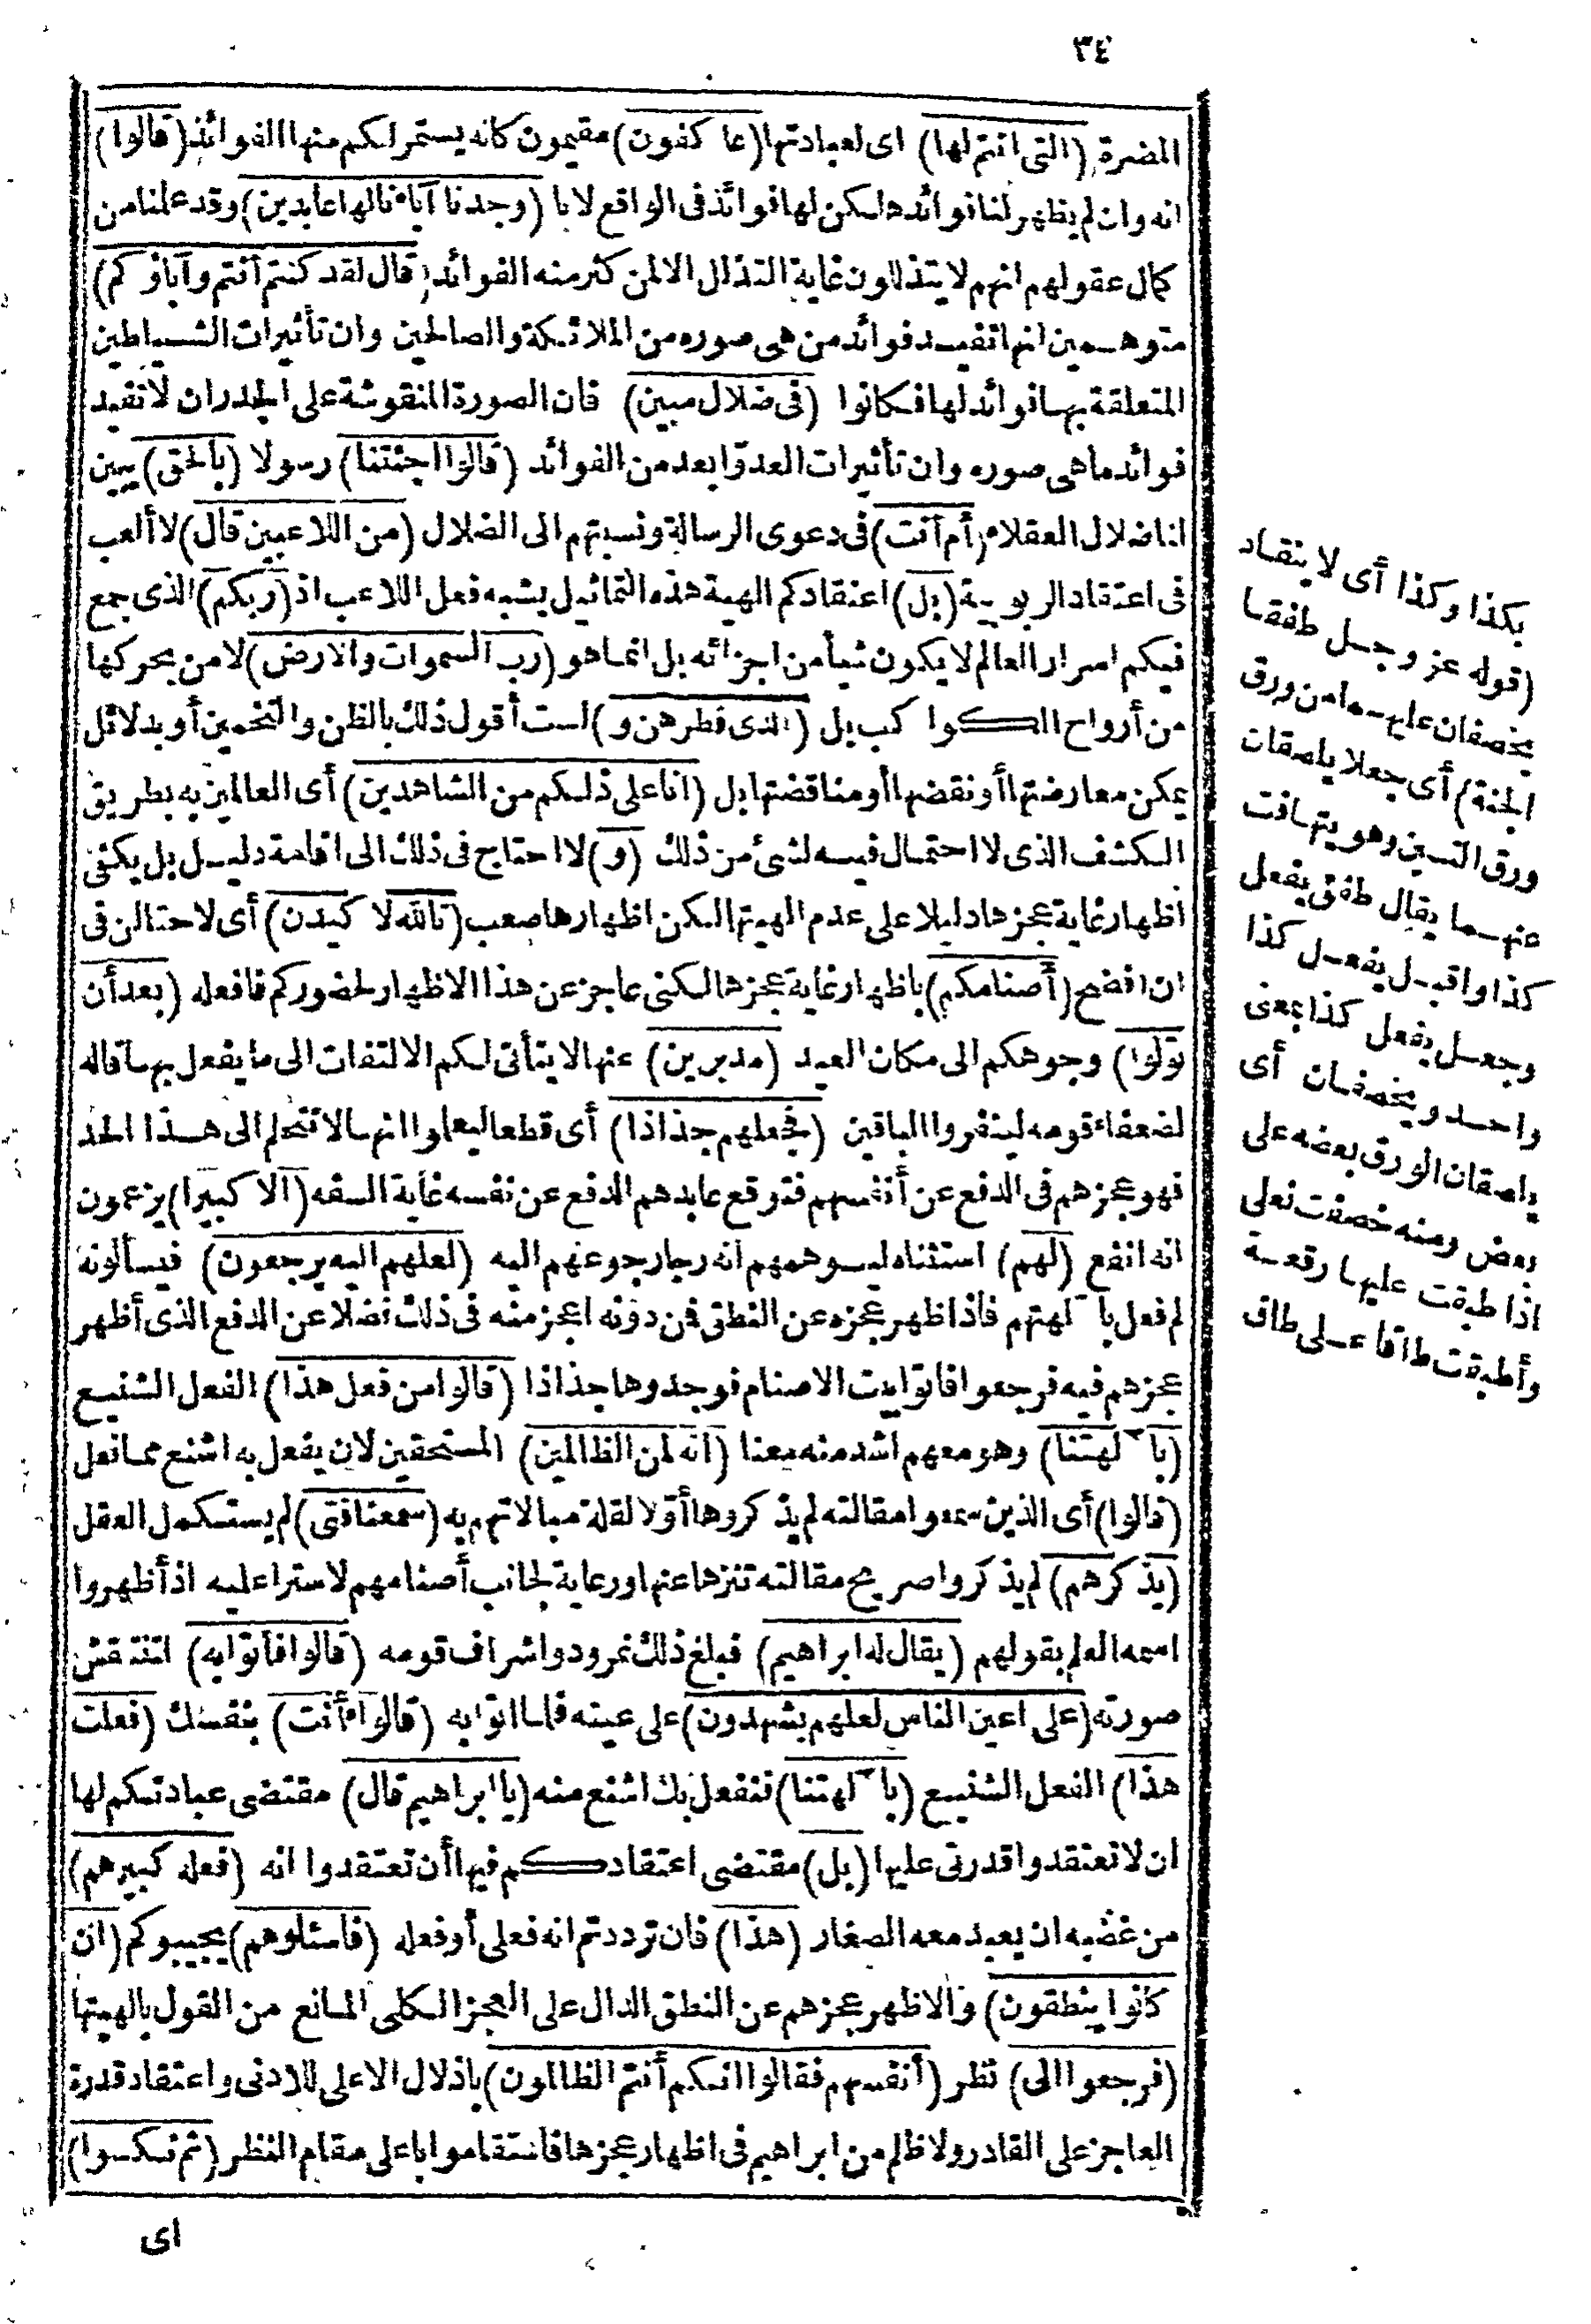 ٣٤
المضرة (التى انتم لها) اى لعبادتها (عاكفون) مقيمون كانه يستمر لكم منها الفوائد (قالوا)
انه وان لم يظهر لنا فوائدها لكن لها فوائد فى الواقع لانا (وجدنا آباءنا لها عابدين) وقد علمنا من
كمال عقولهم انهم لا يتذللون غاية التذلل الا لمن كثر منه الفوائد (قال لقد كنتم أنتم وآباؤكم)
متوهمين انها تفيد فوائد من هى صوره من الملائكة والصالحين وان تأثيرات الشياطين
المتعلقة بها فوائد لها فكانوا (فى ضلال مبين) فان الصورة المنقوشة على الجدران لا تفيد
فوائد ما هى صوره وان تأثيرات العدوّ ابعد من الفوائد (قالوا اجئتنا) رسولا (بالحق) يبين
لنا ضلال العقلاء (أم أنت) فى دعوى الرسالة ونسبتهم الى الضلال (من اللاعبين قال) لا ألعب
فى اعتقاد الربوبية (بل) اعتقادكم الهية هذه التماثيل يشبه فعل اللاعب اذ (ربكم) الذى جمع
فيكم اسرار العالم لا يكون شيأ من اجزائه بل انما هو (رب السموات والارض) لا من يحركها
من أرواح الكواكب بل (الذى فطرهن و) لست أقول ذلك بالظن والتخمين أو بدلائل
يمكن معارضتها أو نقضها أو مناقضتها بل (انا على ذلكم من الشاهدين) أى العالمين به بطريق
الكشف الذى لا احتمال فيه لشئ من ذلك (و) لا احتاج فى ذلك الى اقامة دليل بل يكفى
اظهار غاية عجزها دليلا على عدم الهيتها لكن اظهارها صعب (تالله لاكيدن) أى لاحتالن فى
ان افضح (أصنامكم) باظهار غاية عجزها لكنى عاجز عن هذا الاظهار لحضوركم فافعله (بعد أن
تولوا) وجوهكم الى مكان العيد (مدبرين) عنها لا يتأتى لكم الالتفات الى ما يفعل بها قاله
لضعفاء قومه لينفروا الباقين (فجعلهم جذاذا) أى قطعا ليعلموا انها لا تتحلم الى هذا الحد
فهو عجزهم فى الدفع عن أنفسهم فتوقع عابدهم الدفع عن نفسه غاية السفه (الا كبيرا) يزعمون
انه انفع (لهم) استثناه ليوهمهم انه ربما رجوعهم اليه (لعلهم اليه يرجعون) فيسألونه
لم فعل بآلهتهم فاذا ظهر عجزه عن النطق فمن دونه اعجز منه فى ذلك فضلا عن الدفع الذى أظهر
عجزهم فيه فرجعوا فاتوا بيت الاصنام فوجدوها جذاذا (قالوا من فعل هذا) الفعل الشنيع
(بآلهتنا) وهو معهم اشد منه معنا (انه لمن الظالمين) المستحقين لان يفعل به اشنع مما فعل
(قالوا) أى الذين سمعوا مقالته لم يذكروها أوّلا لقلة مبالاتهم به (سمعنا فتى) لم يستكمل العقل
(يذكرهم) لم يذكروا صريح مقالته تنزها عنها ورعاية لجانب أصنامهم لا سترا عليه اذ أظهروا
اسمه العلم بقولهم (يقال له ابراهيم) فبلغ ذلك نمرود واشراف قومه (قالوا فأتوا به) لتنتقش
صورته (على اعين الناس لعلهم يشهدون) على عينه فلما اتوا به (قالوا أأنت) بنفسك (فعلت
هذا) الفعل الشنيع (بآلهتنا) فنفعل بك اشنع منه (يا ابراهيم قال) مقتضى عبادتكم لها
ان لا تعتقدوا قدرتى عليها (بل) مقتضى اعتقادكم فيها أن تعتقدوا انه (فعله كبيرهم)
من غضبه ان يعبد معه الصغار (هذا) فان ترددتم انه فعلى أو فعله (فاسئلوهم) يجيبوكم (ان
كانوا ينطقون) والا ظهر عجزهم عن النطق الدال على العجز الكلى المانع من القول بالهيتها
(فرجعوا الى) نظر (أنفسهم فقالوا انكم أنتم الظالمون) باذلال الاعلى للادنى واعتقاد قدرة
العاجز على القادر ولا ظلم من ابراهيم فى اظهار عجزها فاستقاموا باعلى مقام النظر (ثم نكسوا)
اى
بكذا وكذا أى لا ينقاد
(قوله عز وجل طفقا
يخصفان عليهما من ورق
الجنة) أى جعلا يلصقان
ورق التين وهو يتهافت
عنهما يقال طفق يفعل
كذا واقبل يفعل كذا
وجعل يفعل كذا بمعنى
واحد ويخصفان أى
يلصقان الورق بعضه على
بعض ومنه خصفت نعلى
اذا طبقت عليها رقعة
وأطبقت طاقا على طاق